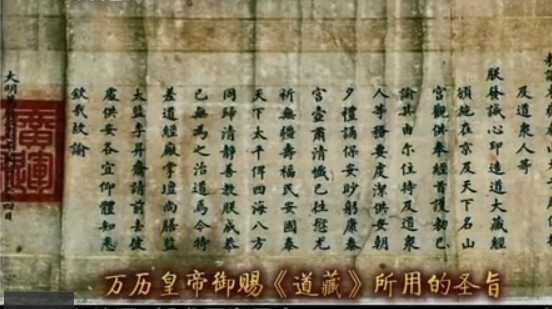 及道衆人等
朕發誠心印造道大藏經
頒施在京及天下名山
宮觀供奉經首護勅已
諭其由尔住持及道衆
人等務要虔潔供安朝
夕禮誦保安眇躬康泰
宮壼肅清懺已往愆尤
祈無疆壽福民安國泰
天下太平俾四海八方
同歸清靜善教朕成恭
已無為之治道焉今特
差道經廠掌壇尚膳監
太監李昇齎請前去彼
處供安各宜仰體知悉
欽哉故諭
大明
日
万历皇帝御赐《道藏》所用的圣旨